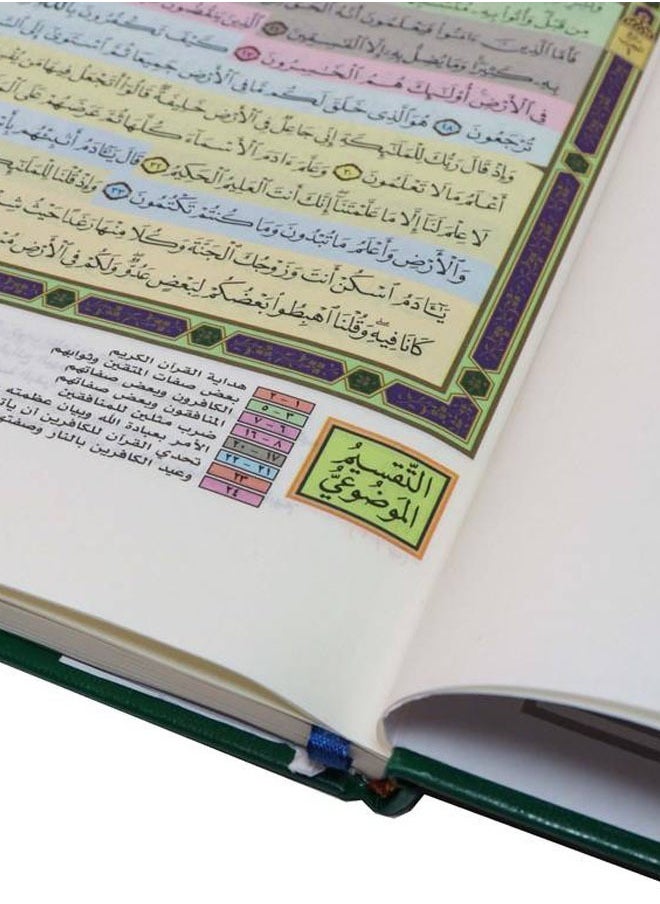 مِن قَبْلُ وَأُتُوا۟ بِهِۦ
فَأَمَّا ٱلَّذِينَ ءَامَنُوا۟ فَيَعْلَمُونَ أَنَّهُ ٱلْحَقُّ
بِهِۦ كَثِيرًا وَمَا يُضِلُّ بِهِۦٓ إِلَّا ٱلْفَٰسِقِينَ ٢٦ ٱلَّذِينَ يَنقُضُونَ
فِى ٱلْأَرْضِ أُو۟لَٰٓئِكَ هُمُ ٱلْخَٰسِرُونَ ٢٧ كَيْفَ تَكْفُرُونَ بِٱللَّهِ
تُرْجَعُونَ ٢٨ هُوَ ٱلَّذِى خَلَقَ لَكُم مَّا فِى ٱلْأَرْضِ جَمِيعًا ثُمَّ ٱسْتَوَىٰٓ إِلَى
وَإِذْ قَالَ رَبُّكَ لِلْمَلَٰٓئِكَةِ إِنِّى جَاعِلٌ فِى ٱلْأَرْضِ خَلِيفَةً قَالُوٓا۟ أَتَجْعَلُ فِيهَا مَن
أَعْلَمُ مَا لَا تَعْلَمُونَ ٣٠ وَعَلَّمَ ءَادَمَ ٱلْأَسْمَآءَ كُلَّهَا ثُمَّ عَرَضَهُمْ عَلَى
لَا عِلْمَ لَنَآ إِلَّا مَا عَلَّمْتَنَآ إِنَّكَ أَنتَ ٱلْعَلِيمُ ٱلْحَكِيمُ ٣٢ قَالَ يَٰٓـَٔادَمُ أَنۢبِئْهُم
وَٱلْأَرْضِ وَأَعْلَمُ مَا تُبْدُونَ وَمَا كُنتُمْ تَكْتُمُونَ ٣٣ وَإِذْ قُلْنَا لِلْمَلَٰٓئِكَةِ
يَٰٓـَٔادَمُ ٱسْكُنْ أَنتَ وَزَوْجُكَ ٱلْجَنَّةَ وَكُلَا مِنْهَا رَغَدًا حَيْثُ
كَانَا فِيهِ وَقُلْنَا ٱهْبِطُوا۟ بَعْضُكُمْ لِبَعْضٍ عَدُوٌّ وَلَكُمْ فِى ٱلْأَرْضِ
التَّقْسِيمُ
المَوْضُوعِيُّ
١ - ٢ هداية القرآن الكريم
٣ - ٥ بعض صفات المتقين وثوابهم
٦ - ٧ الكافرون وبعض صفاتهم
٨ - ١٦ المنافقون وبعض صفاتهم
١٧ - ٢٠ ضرب مثلين للمنافقين
٢١ - ٢٢ الأمر بعبادة الله وبيان عظمته
٢٣ تحدي القرآن للكافرين أن
٢٤ وعيد الكافرين بالنار